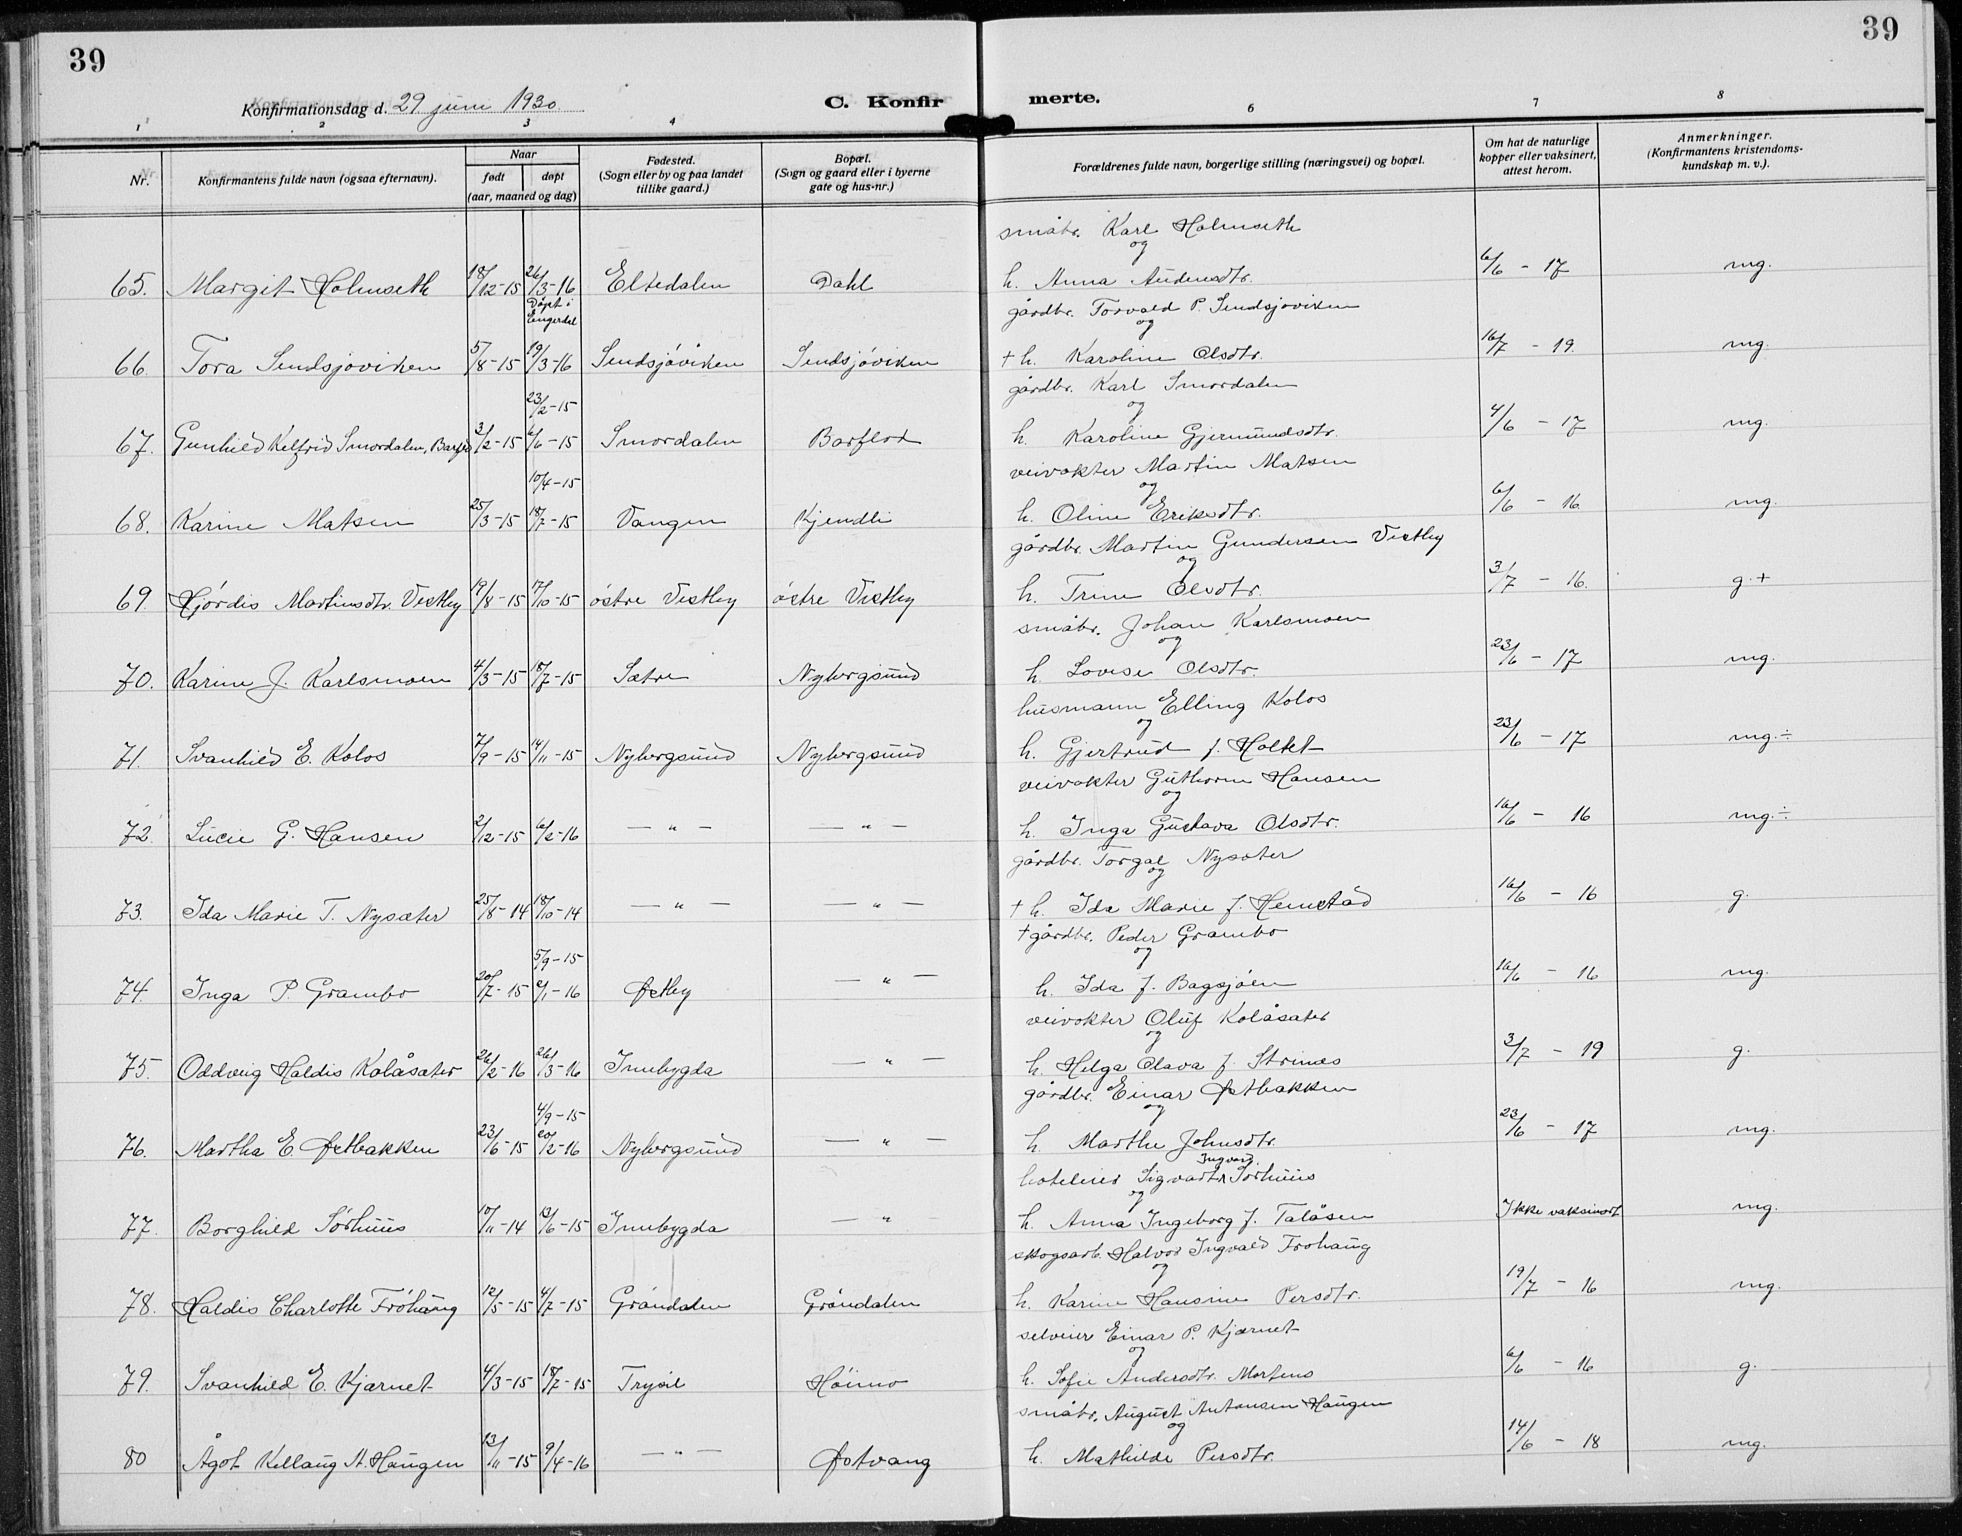 39
39
Konfirmationsdag d. 29 juni 1930.
C. Konfir
merte.
1 2 3 4 6 7 8
Nr.
Konfirmantens fulde navn (ogsaa efternavn).
Naar
født døpt
(aar, maaned og dag)
Fødested.
(Sogn eller by og paa landet
tillike gaard.)
Bopæl.
(Sogn og gaard eller i byerne
gate og hus-nr.)
Forældrenes fulde navn, borgerlige stilling (næringsvei) og bopæl.
Om hat de naturlige
kopper eller vaksinert,
attest herom.
Anmerkninger.
(Konfirmantens kristendoms-
kundskap m. v.).
småbr. Karl Holmseth
og
65. Margit Holmseth 18/12-15 26/3-16 Eltedalen Dahl h. Anna Audensdtr. 6/6 - 17 mg.
Døpt i
Engerdal
gårdbr. Torvald P. Sendsjøviken
og
66. Tora Sendsjøviken 5/8-15 19/3-16 Sendsjøviken Sendsjøviken + h. Karoline Olsdtr. 16/7 - 19. mg.
gårdbr. Karl Smordalen
og
23/2-15
67. Gunhild Kelfrid Smordalen, Barflo 3/2-15 6/6-15 Smordalen Barflod h. Karoline Gjermundsdtr. 4/6 - 17 mg.
veivokter Martin Matsen
og
10/4-15
68. Karine Matsen 25/3-15 18/7-15 Vangen Kjendli h. Oline Eriksdtr. 6/6 - 16. mg.
gårdbr. Martin Gundersen Vestby
og
69 Hjørdis Martinsdtr. Vestby 19/8-15 17/10-15 østre Vestby østre Vestby h. Trine Olsdtr. 3/7 - 16. g.+
småbr. Johan Karlsmoen
og
70. Karine J. Karlsmoen 4/3-15 18/7-15 Sætre Nybergsund h. Lovise Olsdtr. 23/6 - 17 mg.
husmann Elling Kolos
og
71. Svanhild E. Kolos 7/9-15 14/11-15 Nybergsund Nybergsund h. Gjertrud f. Holtet 23/6 - 17 mg.÷
veivokter Guthorm Hansen
og
72. Lucie G. Hansen 2/12-15 6/2-16 — " — — " — h. Inga Gustava Olsdtr. 16/6 - 16 mg.÷
gårdbr. Torgal Nysæter
og
73. Ida Marie T. Nysæter 25/8-14 18/10-14 — " — — " — + h. Ida Marie f. Hemstad 16/6 - 16 g.
+ gårdbr. Peder Grambo
og
5/9-15
74. Inga P. Grambo 20/7-15 2/1-16 Østby — " — h. Ida f. Bagsjøen 16/6 - 16 mg.
veivokter Oluf Kolåsæter
og
75. Oddveig Haldis Kolåsæter 26/2-16 26/3-16 Innbygda — " — h. Helga Olava f. Strinæs 3/7 - 19 g.
gårdbr. Einar Østbakken
og
4/9-15
76. Martha E Østbakken 23/6-15 20/2-16 Nybergsund — " — h. Marthe Johnsdtr. 23/6 - 17 mg.
Ingvard
hoteleier Sigvart Sørhuus
og
77. Borghild Sørhuus 10/11-14 13/6-15 Innbygda — " h. Anna Ingeborg f. Talåsen Ikke vaksinert mg.
skogsarb. Halvor Ingvald Frohaug
og
78. Haldis Charlotte Fröhaug 12/5-15 4/7-15 Gröndalen Gröndalen h. Karine Hansine Persdtr. 19/7 - 16 mg.
selveier Einar P. Kjærnet
og
79. Svanhild E. Kjærnet 4/3-15 18/7-15 Trysil Høimo h. Sofie Andersdtr. Mortens 6/6 - 16 g.
småbr. August Antonsen Haugen
og
80 Ågot Kellaug A. Haugen 13/11-15 9/4-16 — " — Østvang h. Mathilde Persdtr. 14/6 - 18 mg.